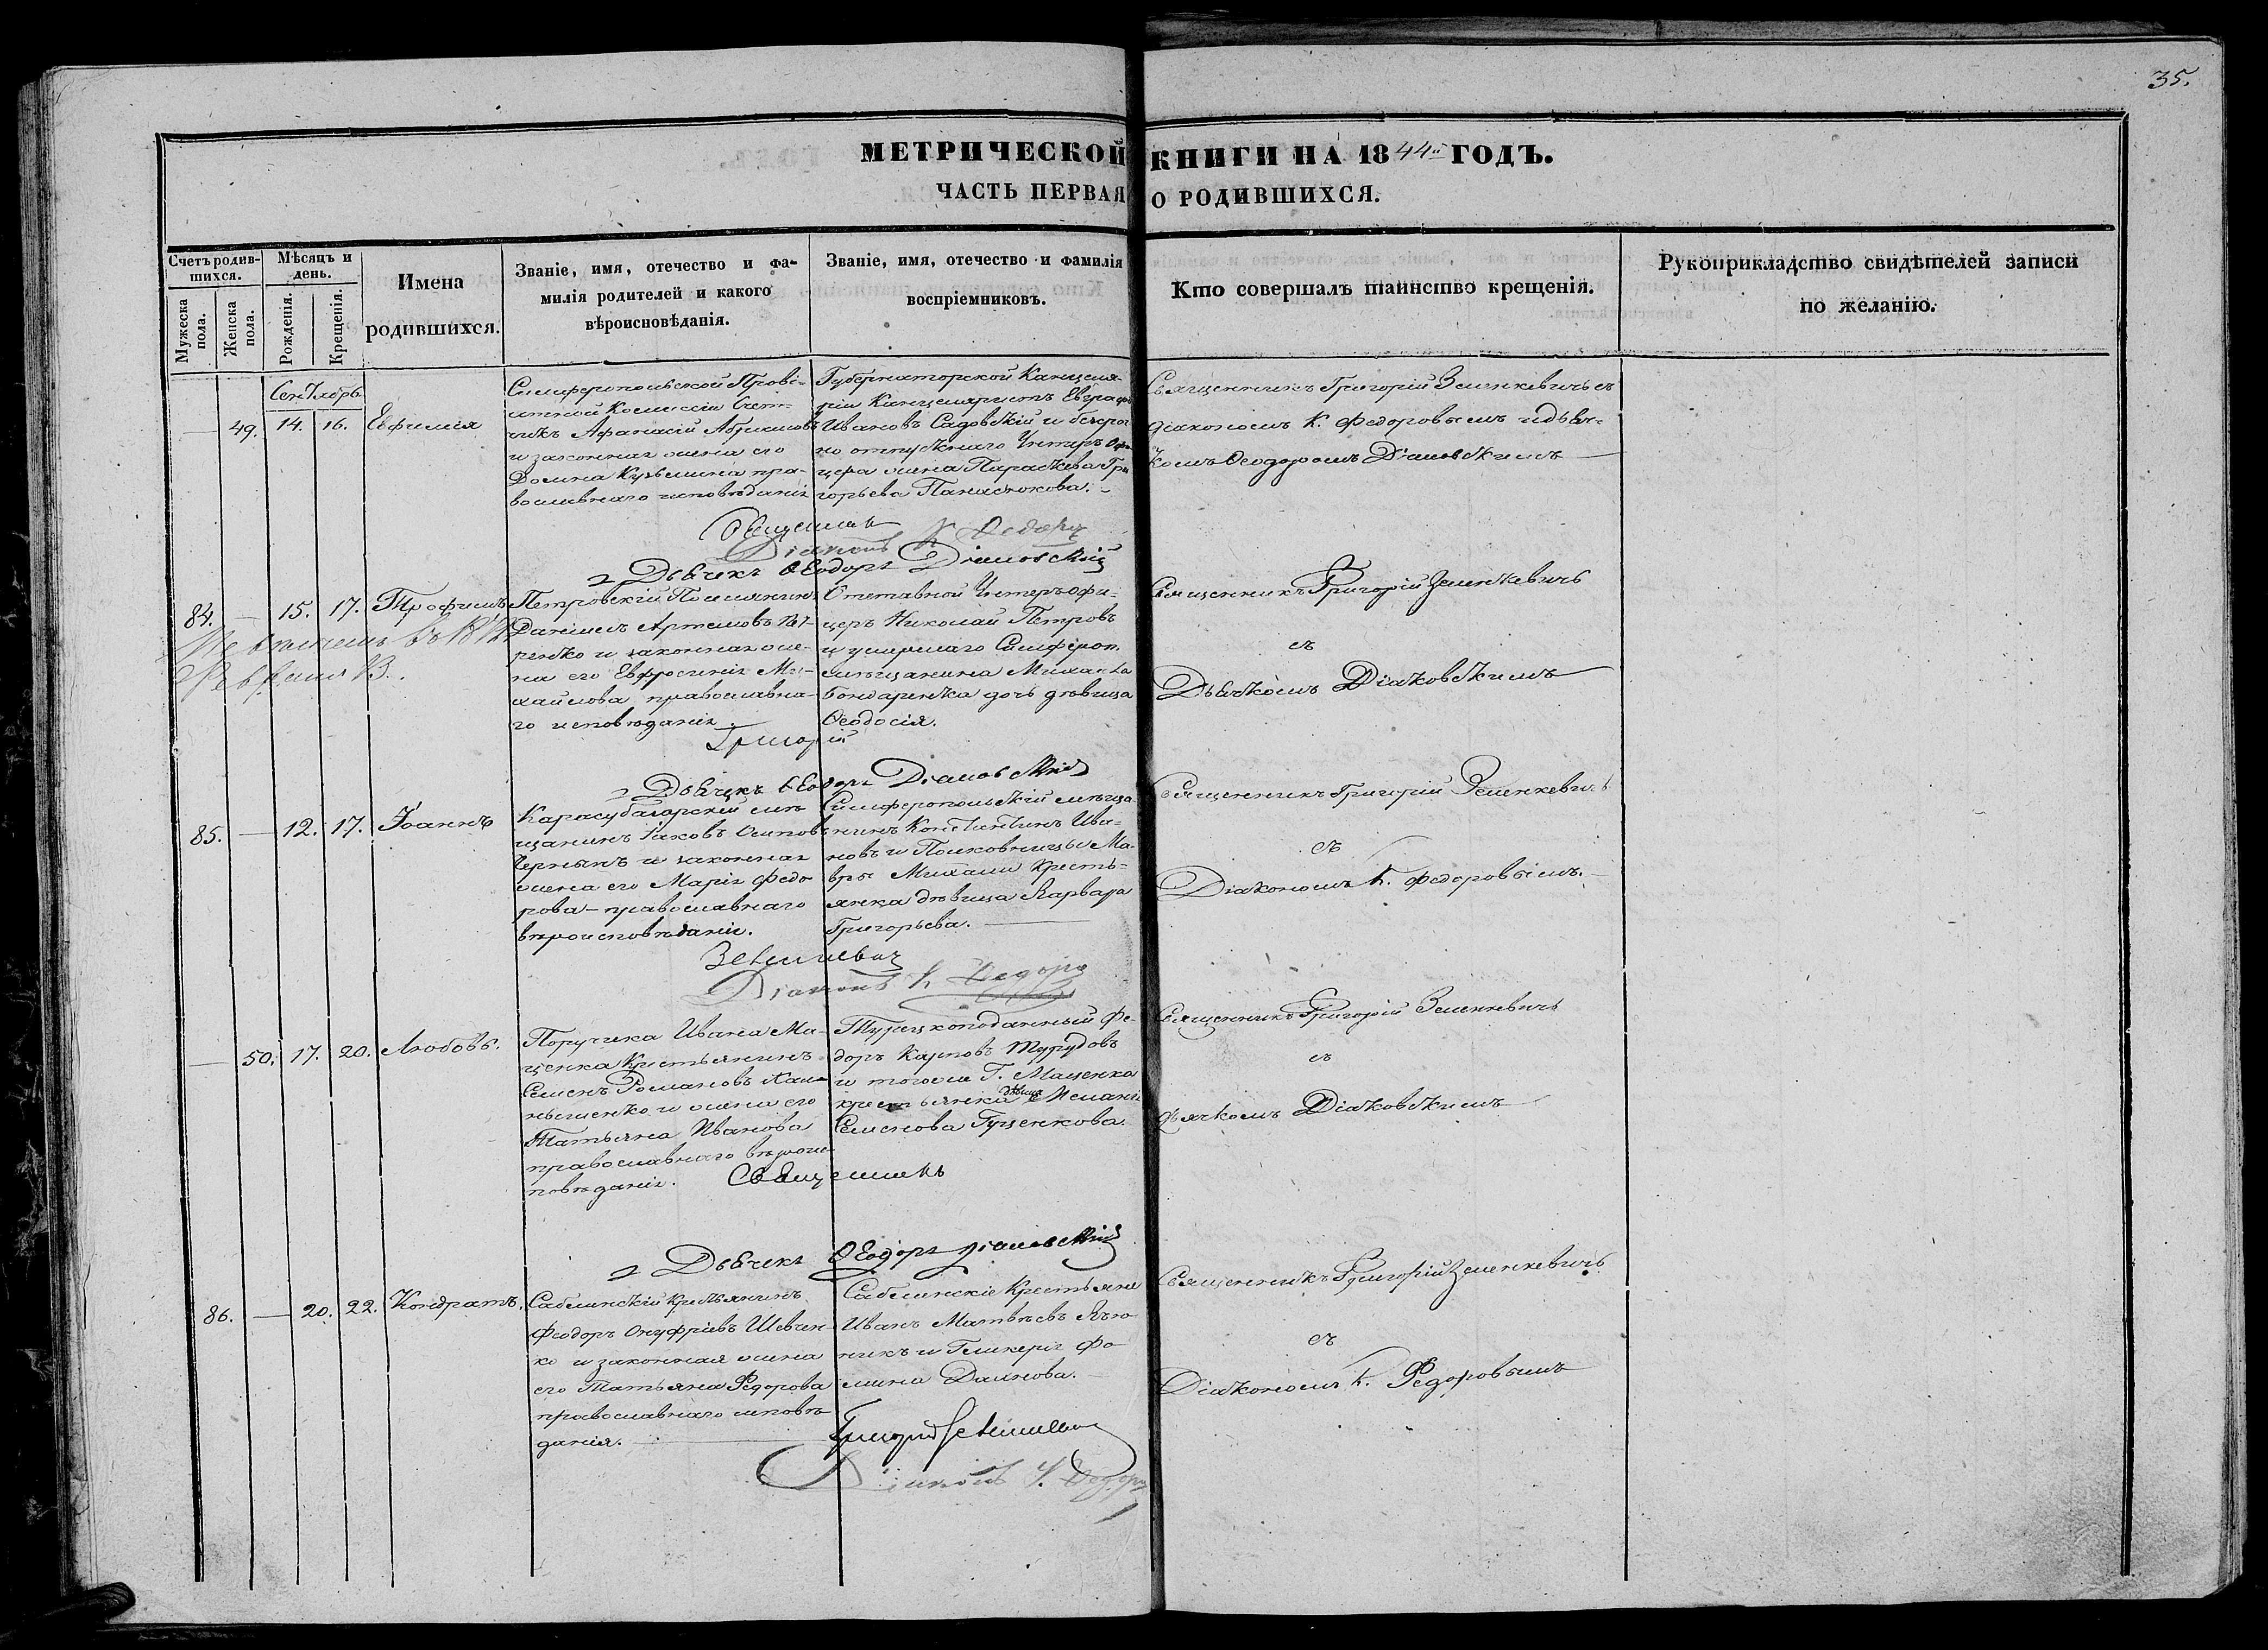 35.
МЕТРИЧЕСКОЙ КНИГИ НА 1844й ГОДЪ.
ЧАСТЬ ПЕРВАЯ О РОДИВШИХСЯ.
Счетъ родив-
шихся.
Мужеска пола.
Женска пола.
Мѣсяцъ и
день.
Рожденія.
Крещенія.
Имена
родившихся.
Званіе, имя, отечество и фа-
милія родителей и какого
вѣроисновѣданія.
Званіе, имя, отечество и фамилія
воспріемниковъ.
Кто совершалъ таинство крещенія.
Рукоприкладство свидѣтелей записи
по желанію.
Сентябрь
— 49. 14. 16. Евфимія
Симферопольской Прові-
антской Комиссіи
Афанасій
и законная жена его
Домна Кузьмина пра-
вославнаго исповѣданія
Губернаторской Канцеля-
ріи Канцеляристъ Евграфъ
Ивановъ Садовскій и безсроч
но отпускнаго Унтеръ Офи
цера жена Параскева Гри
горьева Панасюкова.
Священникъ Григорій Зенкевичъ съ
діакономъ К. Федоровымъ и дьяч-
комъ Феодоромъ Діаковскимъ
Священникъ
Діаконъ К. Федоръ
Дьячекъ Ѳеодоръ Діаковскій
84. — 15. 17. Трофимъ
Петровскій Поселянинъ
Даніилъ Артемовъ
и законная же-
на его Евфросинія Ми-
хайлова православна-
го исповѣданія
Отставной Унтеръ офи-
церъ Николай Петровъ
и умершаго Симфероп.
мѣщанина Михаила
Бондаренка дочь дѣвица
Ѳеодосія.
Священникъ Григорій Зенкевичъ
съ
Дьячкомъ Діаковскимъ
Григорій
Дьячекъ Ѳеодоръ Діаковскій
85. — 12. 17. Іоаннъ
Карасубазарскій мѣ
щанинъ Іаковъ Осиповъ
и законная
жена его Марія Федо
рова — православнаго
вѣроисповѣданія.
Симферопольскій мѣща-
нинъ Константинъ Ива-
новъ и Полковницы Ма-
вры Михали Кресть-
янка дѣвица Варвара
Григорьева.
Священникъ Григорій Зенкевичъ
съ
Діакономъ К. Федоровымъ.
Зенкевичъ
Діаконъ К. Федоръ
— 50. 17. 20. Любовь.
Поручика Ивана Ма-
ценка Крестьянинъ
Семенъ Романовъ
и жена его
Татьяна Иванова
православнаго вѣроис-
повѣданія.
Турецкоподанный Фе-
доръ Карповъ Турудовъ
и того же Г. Маценка
крестьянка дѣвица Меланія
Семенова Гуценкова.
Священникъ Григорій Зенкевичъ
съ
Дьячкомъ Діаковскимъ
Священникъ
Дьячекъ Ѳеодоръ Діаковскій
86. — 20. 22. Кондратъ.
Саблинскій Крестьянинъ
Феодоръ Онуфріевъ Шевчен-
ко и законная жена
его Татьяна Федорова
православнаго исповѣ
данія.
Саблинскіе Крестьяне
Иванъ Матвѣевъ
и Гликерія Фо
мина
Священникъ Григорій Зенкевичъ
съ
Діакономъ К. Федоровымъ
Григорій Зенкевичъ
Діаконъ К. Федоръ